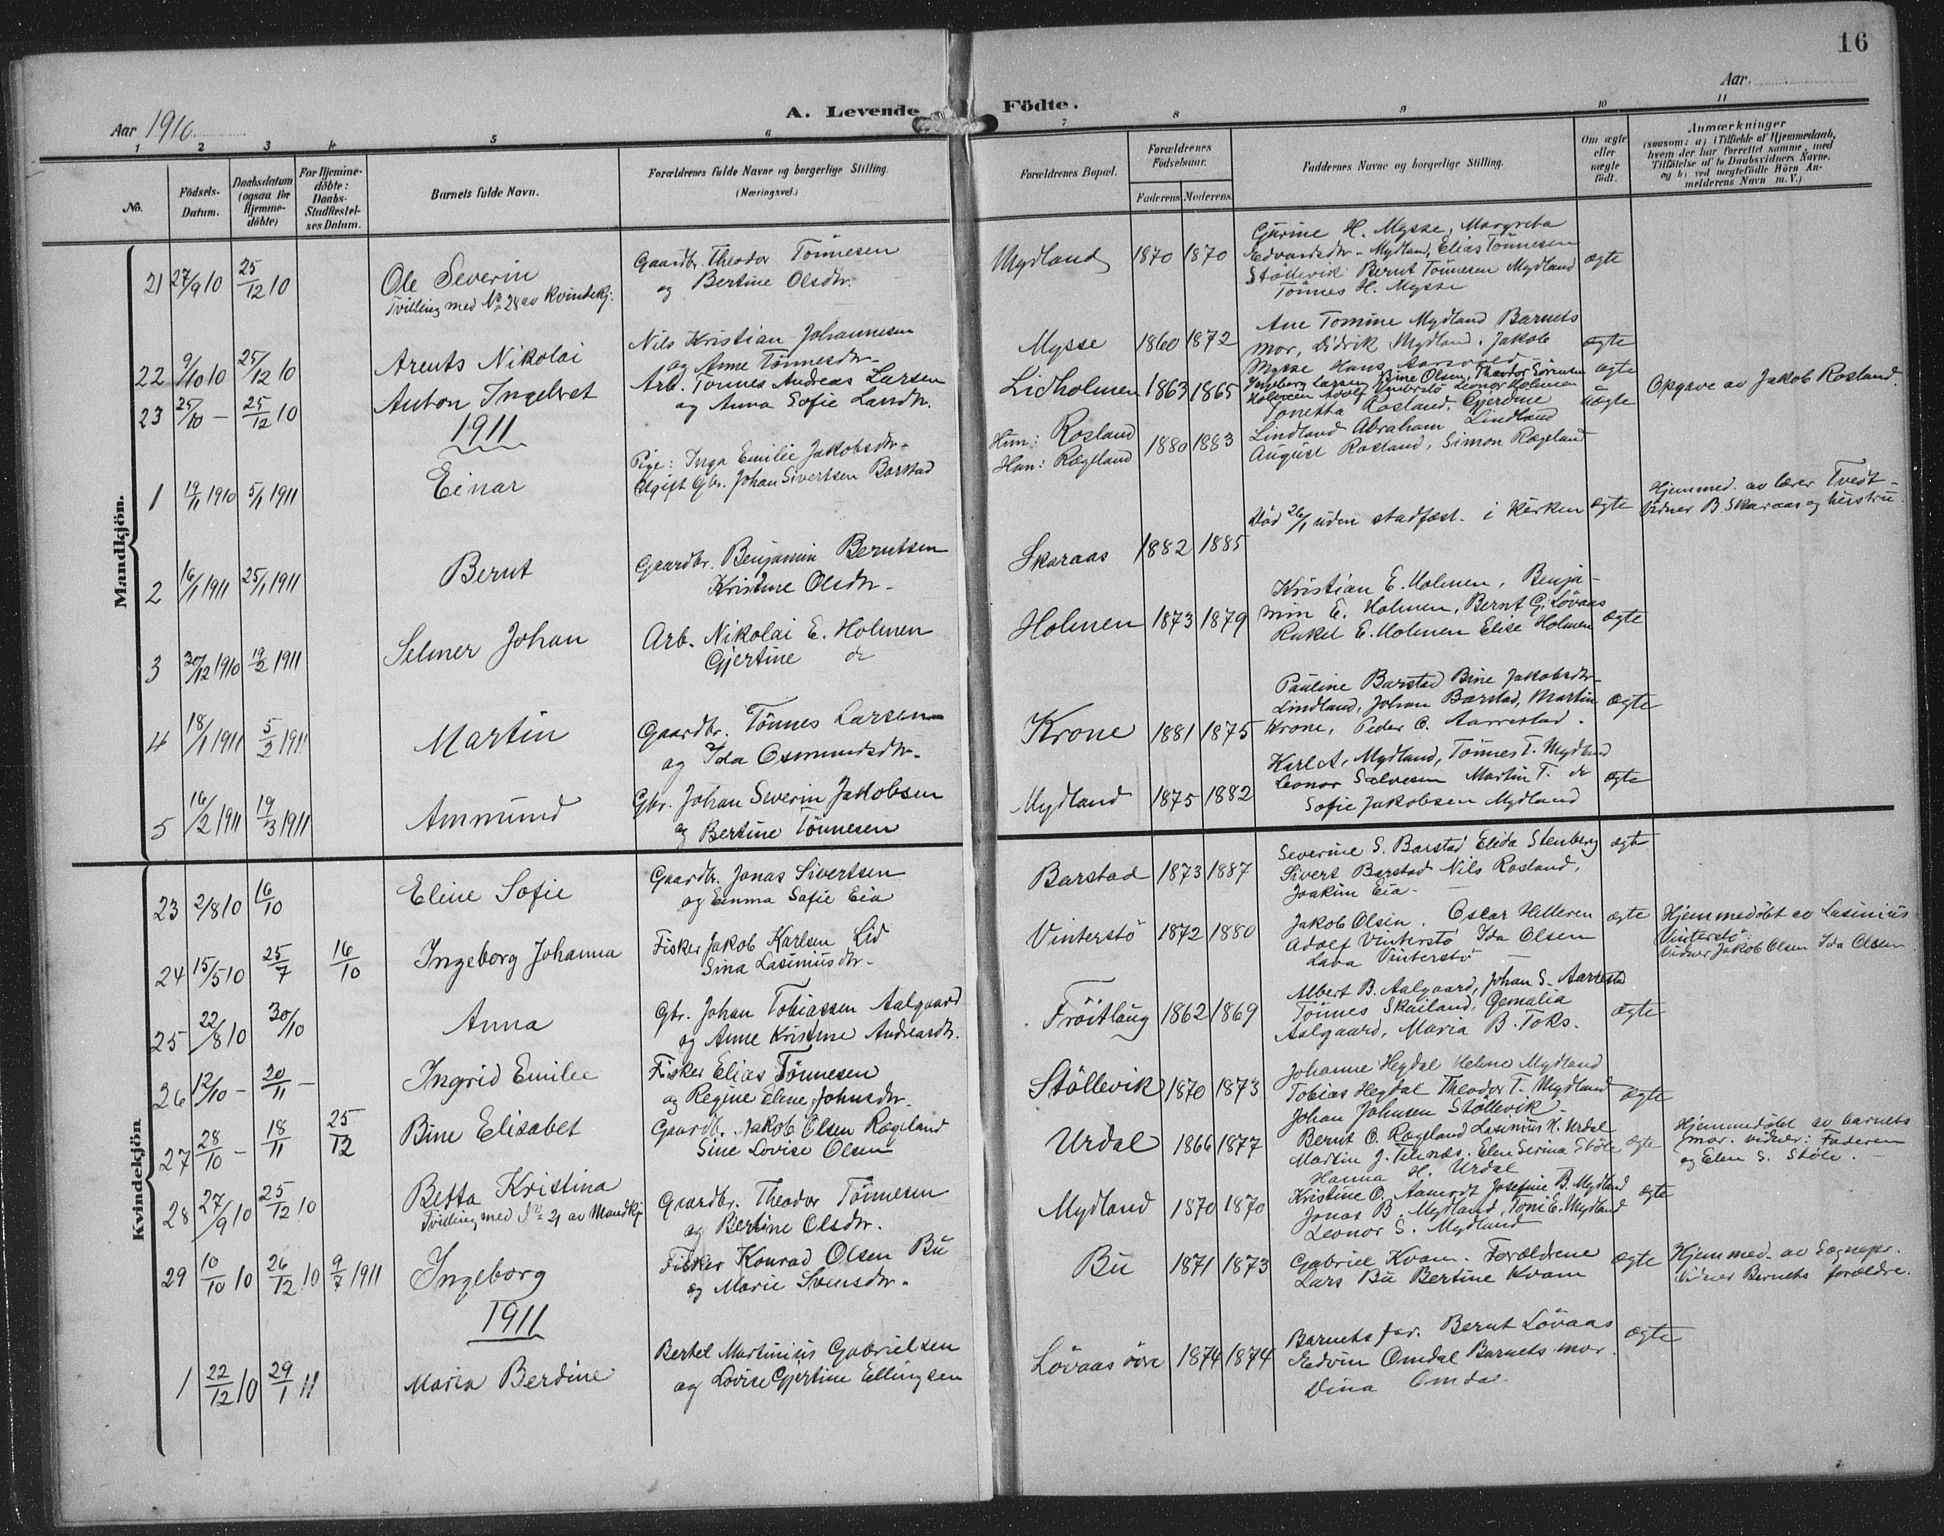 16
Aar 1910
A. Levende Födte.
Aar
1 2 3 4 5 6 7 8 9 10 11
No.
Födsels-Datum.
Daabsdatum (ogsaa for Hjemme-döbte)
For Hjemme-döbte: Daabs-Stadfæstel-ses Datum.
Barnets fulde Navn.
Forældrenes fulde Navne og borgerlige Stilling (Næringsvei.)
Forældrenes Bopæl.
Forældrenes Födselsaar.
Faderens Moderens
Faddernes Navne og borgerlige Stilling.
Om ægte eller uægte födt.
Anmærkninger
(saasom: a) i Tilfælde af Hjemmedaab,
hvem der har forrettet samme, med
Tilföielse af to Daabsvidners Navne,
og b) ved uægtefödte Börn An-
melderens Navn m. V.)
Mandkjön.
21 27/9 10 25/12 10 Ole Severin
Tvilling med No 28 av Kvindekj.
Gaardbr. Theodor Tönnesen
og Bertine Olsdtr.
Mydland 1870 1870
Gurine H. Mysse, Margreta
Edvardsdtr. Mydland, Elias Tönnesen
Stöllevik Bernt Tönnesen Mydland
Tönnes H. Mysse
ægte
22 9/10 10 25/12 10 Arents Nikolai
Nils Kristian Johannesen
og Anne Tönnesdtr.
Mysse 1860 1872
Ane Tomine Mydland Barnets
mor, Didrik Mydland, Jakob
Mysse Hans Aarsvold
ægte
23 25/10 - 25/12 10 Anton Ingelvet
Arb. Tönnes Andreas Larsen
og Anna Sofie Larsdtr.
Lidholmen 1863 1865
Ingeborg Larsen, Bine Olsen, Theodor Sörensen
Holmen Adolf Vinterstö Leonor Holmen
ægte
1911
1 19/11 1910 5/1 1911 Einar
Pige: Inga Emilie Jakobsdtr.
Ugift Gbr. Johan Sivertsen Barstad
Hun: Rosland
Han: Rægeland
1880 1883
Tonetta Rosland, Gjerdine
Lindland Abraham Lindland
August Rosland, Simon Rægeland
uægte
Opgave av Jakob Rosland.
2 16/1 1911 25/1 1911 Bernt
Gaardbr. Benjamin Berntsen
Kristine Olsdtr.
Skaraas 1882 1885
Död 26/1 uden stadfæst. i kirken
ægte
Hjemmed. av lærer Tveit -
vidner B Skaraas og hustru.
3 30/12 1910 19/2 1911 Selmer Johan
Arb. Nikolai E. Holmen
Gjertine do
Holmen 1873 1879
Kristian E. Holmen, Benja-
min E. Holmen, Bernt G. Lövaas
Rakel E. Holmen Elise Holmen
ægte
4 18/1 1911 5/2 1911 Martin
Gaardbr. Tönnes Larsen
og Ida Osmundsdtr.
Krone 1881 1875
Pauline Barstad Bine Jakobsdtr
Lindland, Johan Barstad, Martin
Krone, Peder O. Aarrestad.
ægte
5 16/2 1911 19/3 1911 Ammund
Gbr. Johan Severin Jakobsen
og Bertine Tönnesen
Mydland 1875 1882
Karl A. Mydland, Tönnes T. Mydland
Leonor Salvesen Martin T. do
Sofie Jakobsen Mydland
ægte
Kvindekjön
23 2/8 10 16/10 Eline Sofie
Gaardbr. Jonas Sivertsen
og Emma Sofie Eia
Barstad 1873 1887
Severine S. Barstad Elida Stenberg
Sivert Barstad Nils Rosland,
Joakim Eia.
ægte
24 15/5 10 25/7 16/10 Ingeborg Johanna
Fisker Jakob Karlsen Lid
Sina Lasiniusdtr.
Vinterstö 1872 1880
Jakob Olsen. Oscar Hitteren
Adolf Vinterstö Ida Olsen
Lava Vinterstö
ægte
Hjemmedöbt av Lasinius
Vinterstö.
Vidner Jakob Olsen Ida Olsen
25 22/8 10 30/10 Anna
Gbr. Johan Tobiassen Aalgaard
og Anne Kristine Andreasdtr.
Fröitlaug 1862 1869
Albert B. Aalgaard, Johan S. Aarrestad
Tönnes Skailand, Gemalia
Aalgaard, Maria B. Toks.
ægte
26 12/10 - 20/11 - Ingrid Emilie
Fisker Elias Tönnesen
og Regine Elene Johnsdtr.
Stöllevik 1870 1873
Johanne Hegdal Helene Mydland
Tobias Hegdal Theodor T. Mydland
Johan Johnsen Stöllevik.
ægte
27 28/10 - 18/11 25/12 Bine Elisabet
Gaardb. Jakob Olsen Rægeland
Sine Lovise Olsen
Urdal 1866 1877
Bernt O. Rægeland Lasinius H. Urdal
Martin J. Teknæs. Elen Serina Stöle
Hanna H. Urdal
ægte
Hjemmedöbt av barnets
mor. vidner: Faderen
og Elen S. Stöle.
28 27/9 10 25/12 10 Betta Kristina
Tvilling med No 21 av Mandkj
Gaardbr. Theodor Tönnesen
og Bertine Olsdtr.
Mydland 1870 1870
Kristine O. Aamodt Josefine B. Mydland
Jonas B. Mydland, Toni E. Mydland
Leonor S. Mydland
ægte
29 10/10 10 26/12 10 9/7 1911 Ingeborg
Fisker Konrad Olsen Bu
og Marie Svensdtr.
Bu 1871 1873
Gabriel Kvam. Forældrene
Lars Bu Bertine Kvam
ægte
Hjemmed. av Sognepr.
Vidner Barnets forældre.
1911
1 22/12 10 29/1 11 Maria Berdine
Bertel Martinius Gabrielsen
og Lovise Gjertine Ellingsen
Lövaas övre 1874 1874
Barnets far. Bernt Lövaas
Edvin Omdal Barnets mor.
Dina Omdal
ægte